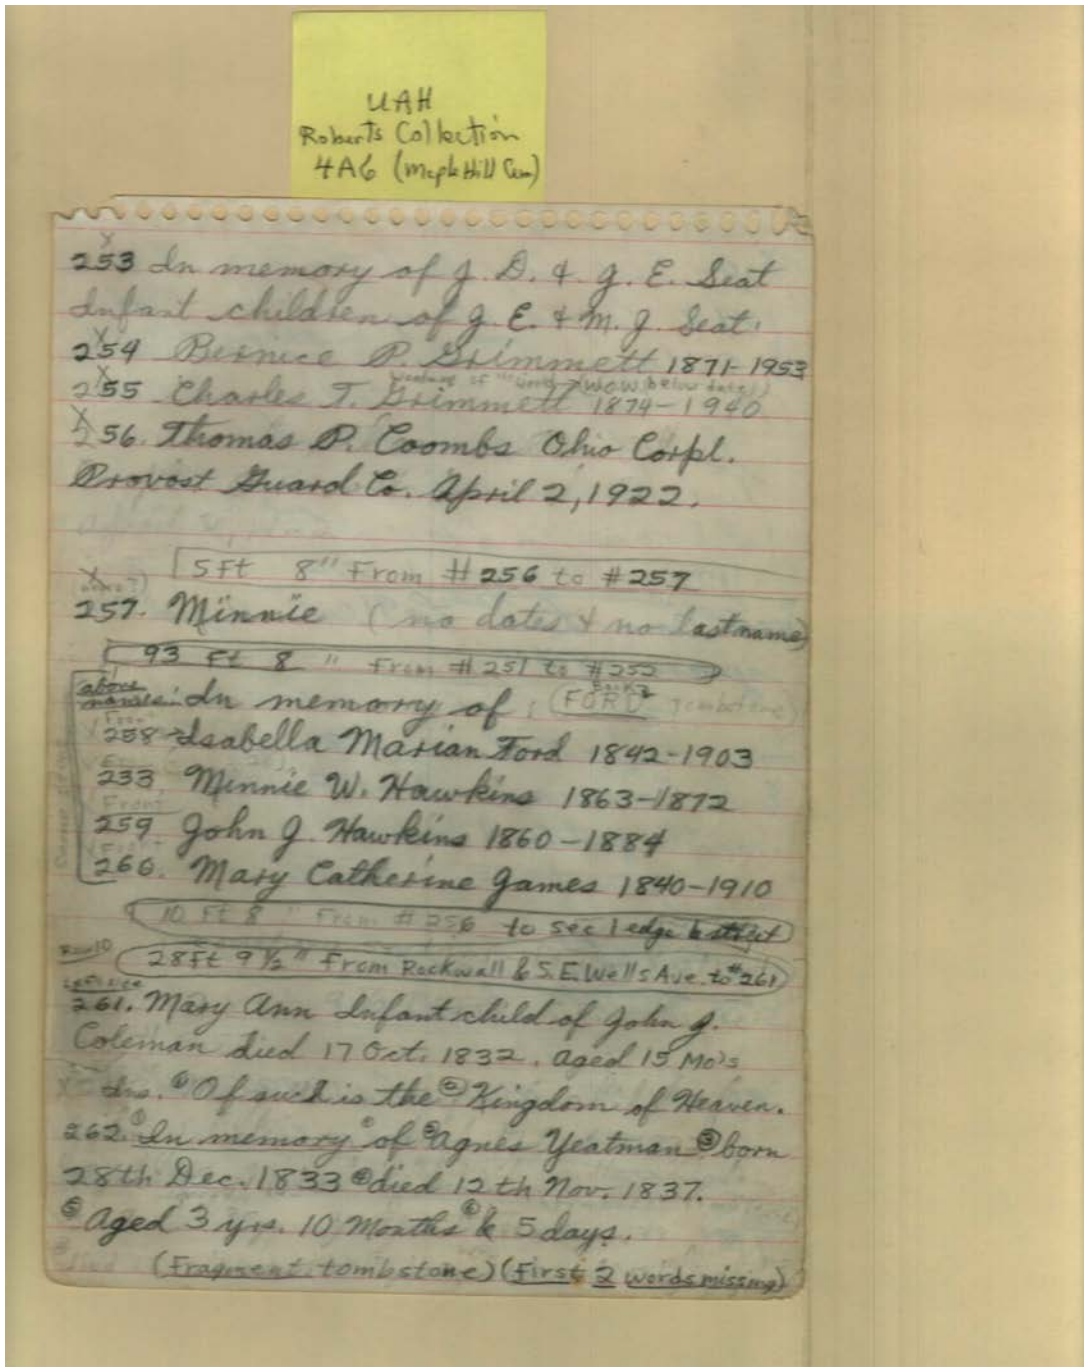 UAH
Roberts Collection
4A6 (Maple Hill Cem)
253 In memory of J. D. & J. E. Seat
Infant children of J. E. & M. J. Seat.
254 Bernice P. Grimmett 1871-1953
Woodmen of the World (WOW below dates)
255 Charles T. Grimmett 1874-1940
256. Thomas P. Coombs Ohio Corpl.
Provost Guard Co. April 2, 1922.
5Ft 8" From #256 to #257
257. Minnie (no dates & no lastname)
93 Ft 8 " From #251 to #252
above names: In memory of: (FORD Tombstone)
Front
258 Isabella Marian Ford 1842-1903
233. Minnie W. Hawkins 1863-1872
Front
259 John J. Hawkins 1860-1884
260. Mary Catherine Games 1840-1910
10 Ft 8 " From #256 to sec 1 edge & street
Row 10
28Ft 9 1/2" From Rockwall & S.E. Wells Ave. to #261
Left side
261. Mary Ann Infant child of John J.
Coleman died 17 Oct. 1832. aged 15 Mo's
① Of such is the ② Kingdom of Heaven.
262. ① In memory of ② Agnes Yeatman ③ born
28th Dec. 1833 ④ died 12th Nov. 1837.
⑤ Aged 3 yrs. 10 Months ⑥ & 5 days.
(Fragment tombstone) (First 2 words missing)